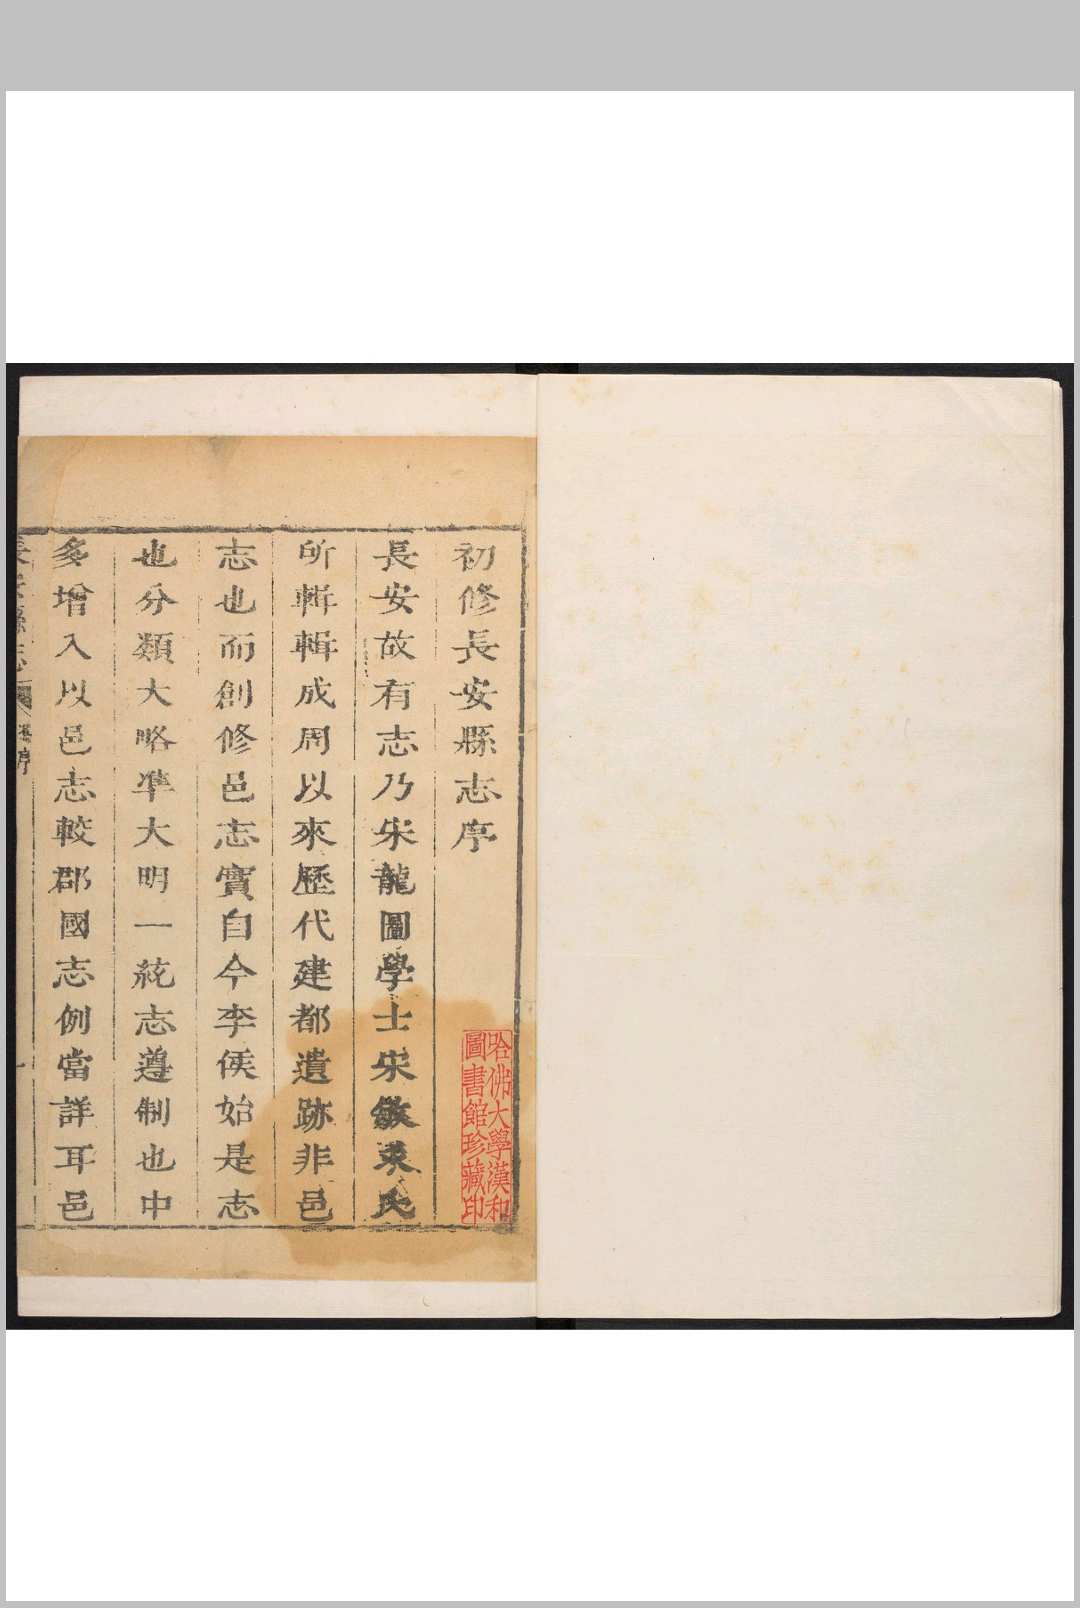 初修長安縣志序
長安故有志乃宋龍圖學士宋敏求氏
所輯輯成周以來歷代建都遺跡非邑
志也而創修邑志實自今李侯始是志
也分類大略準大明一統志遵制也中
多增入以邑志較郡國志例當詳耳邑
長安縣志
序
一
哈佛大學漢和
圖書館珍藏印